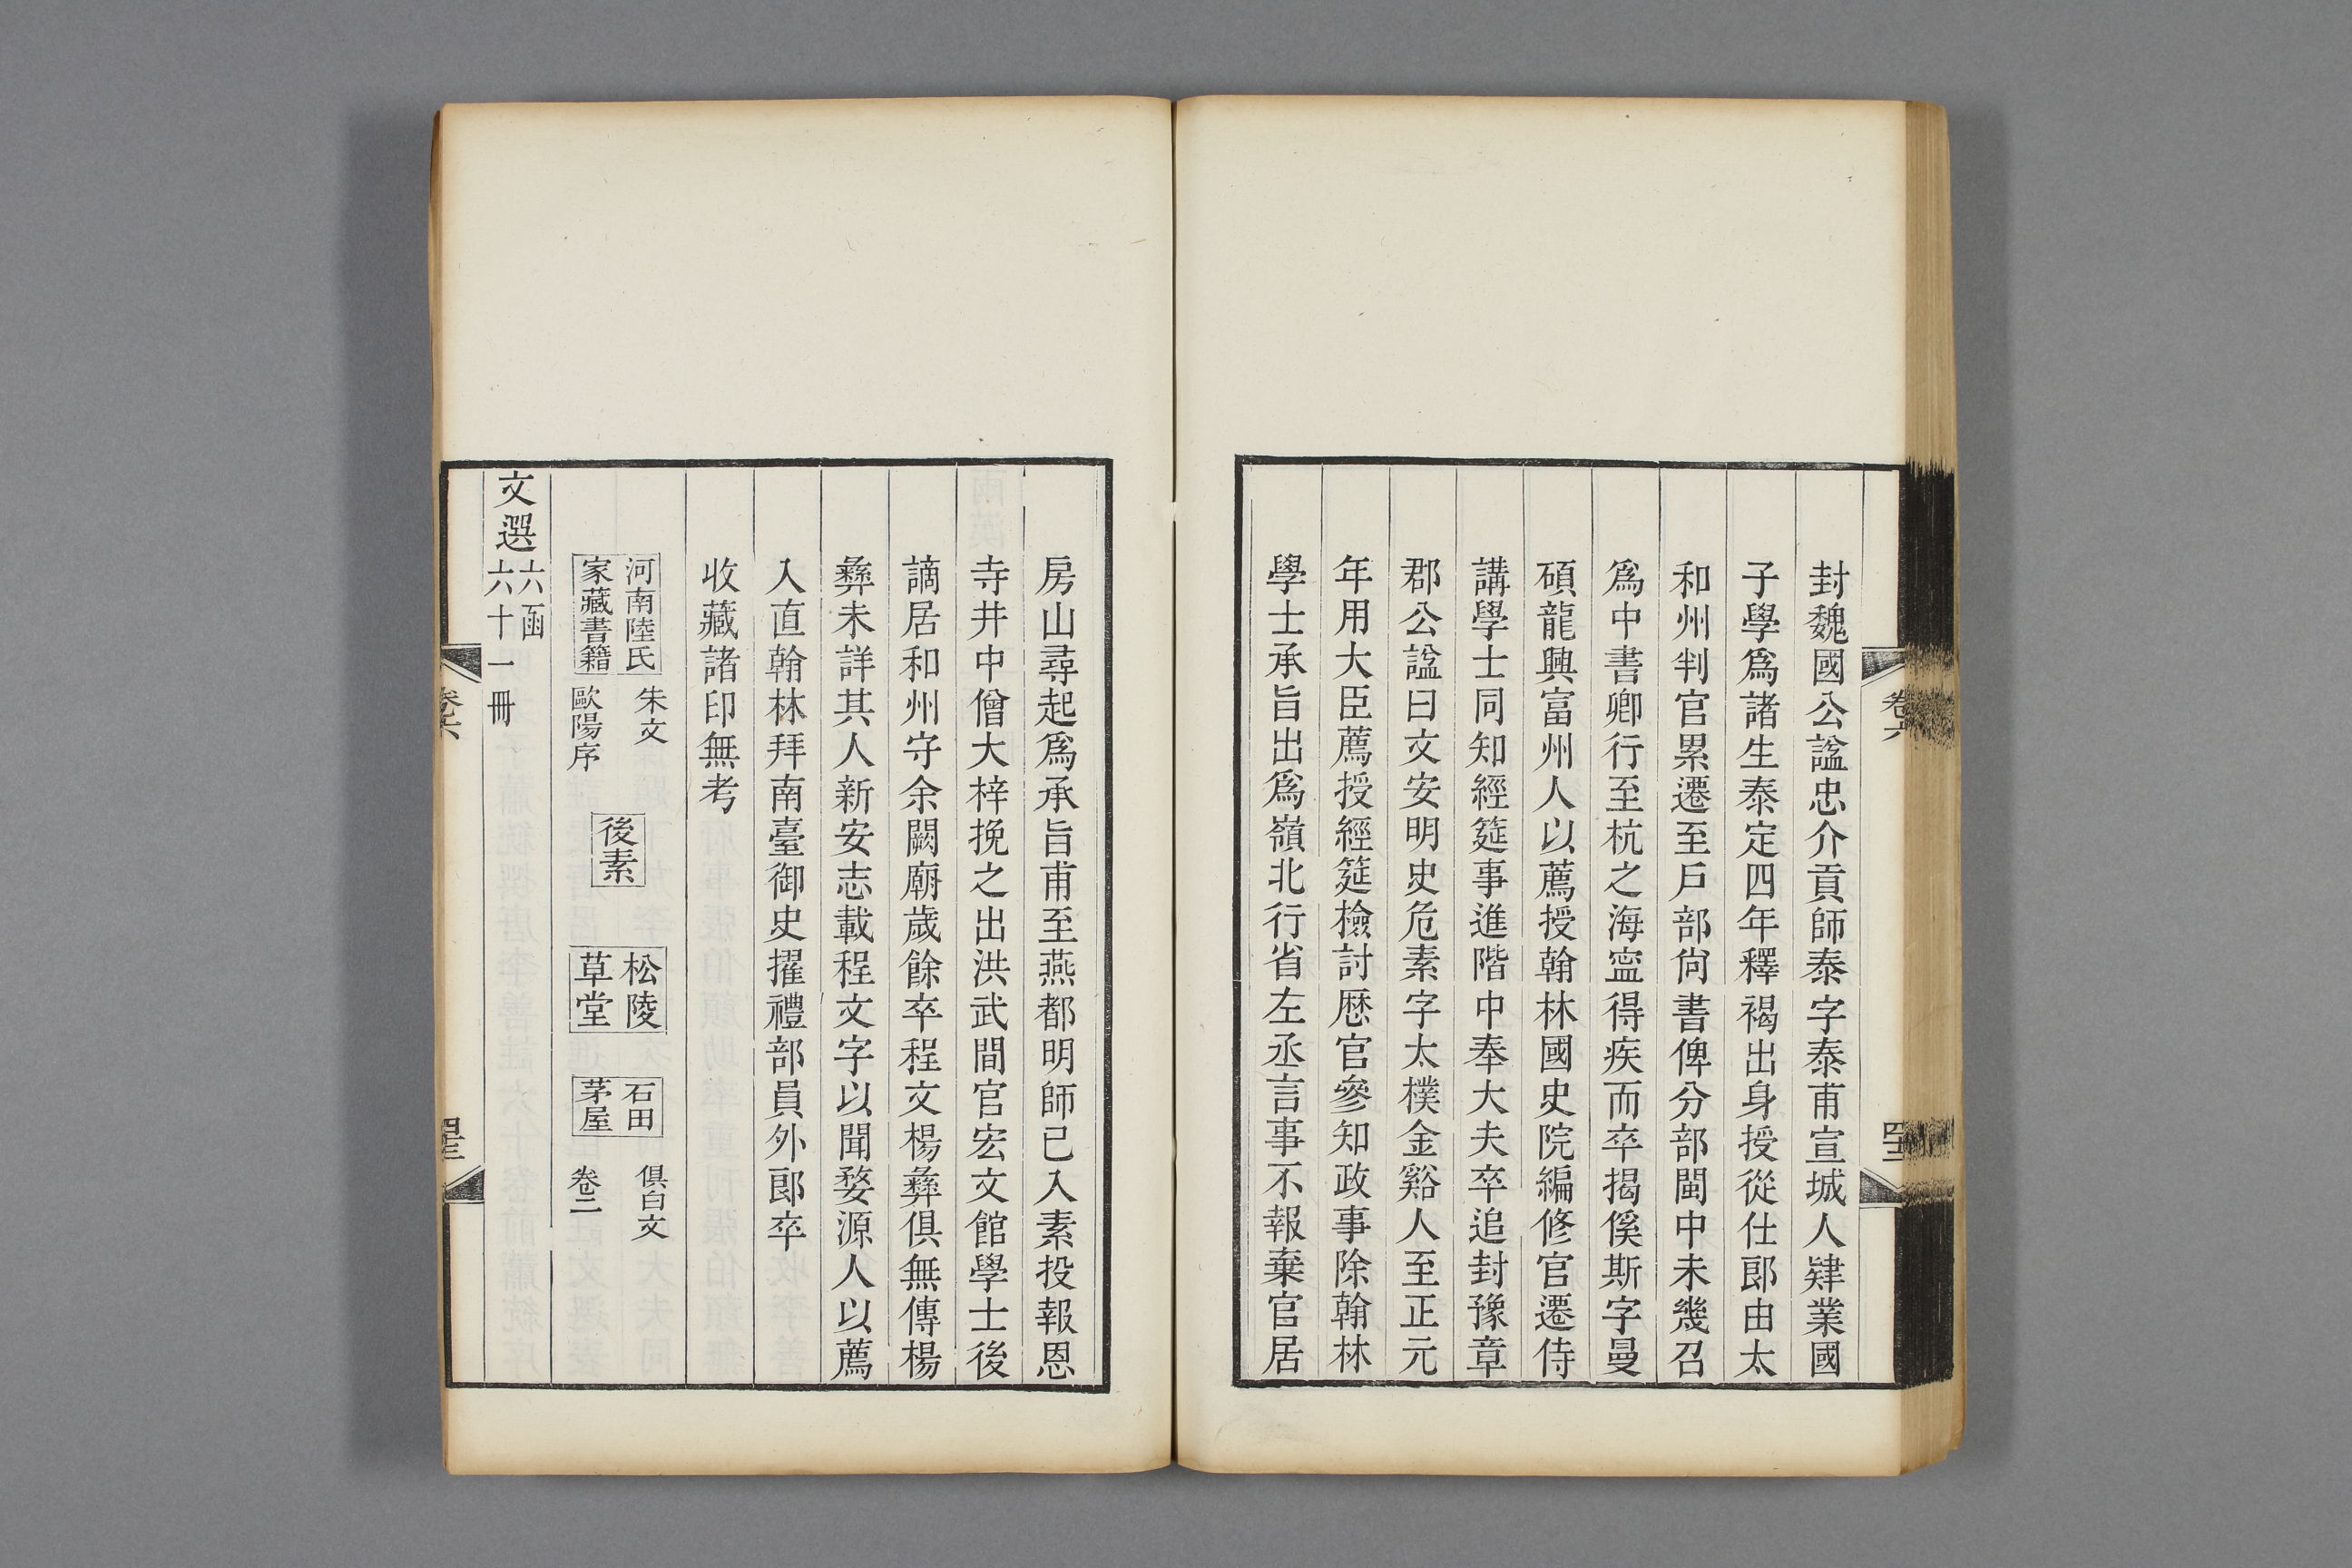 卷六
四十三
封魏國公諡忠介貢師泰字泰甫宣城人肄業國
子學爲諸生泰定四年釋褐出身授從仕郎由太
和州判官累遷至戶部尙書俾分部閩中未幾召
爲中書卿行至杭之海寍得疾而卒揭傒斯字曼
碩龍興富州人以薦授翰林國史院編修官遷侍
講學士同知經筵事進階中奉大夫卒追封豫章
郡公諡曰文安明史危素字太樸金谿人至正元
年用大臣薦授經筵檢討歷官參知政事除翰林
學士承旨出爲嶺北行省左丞言事不報棄官居
房山尋起爲承旨甫至燕都明師已入素投報恩
寺井中僧大梓挽之出洪武間官宏文館學士後
謫居和州守余闕廟歲餘卒程文楊彝俱無傳楊
彝未詳其人新安志載程文字以聞婺源人以薦
入直翰林拜南臺御史擢禮部員外郎卒
收藏諸印無考
河南陸氏
家藏書籍
朱文
歐陽序
後素
松陵
草堂
石田
茅屋
俱白文
卷二
文選
六函
六十一冊